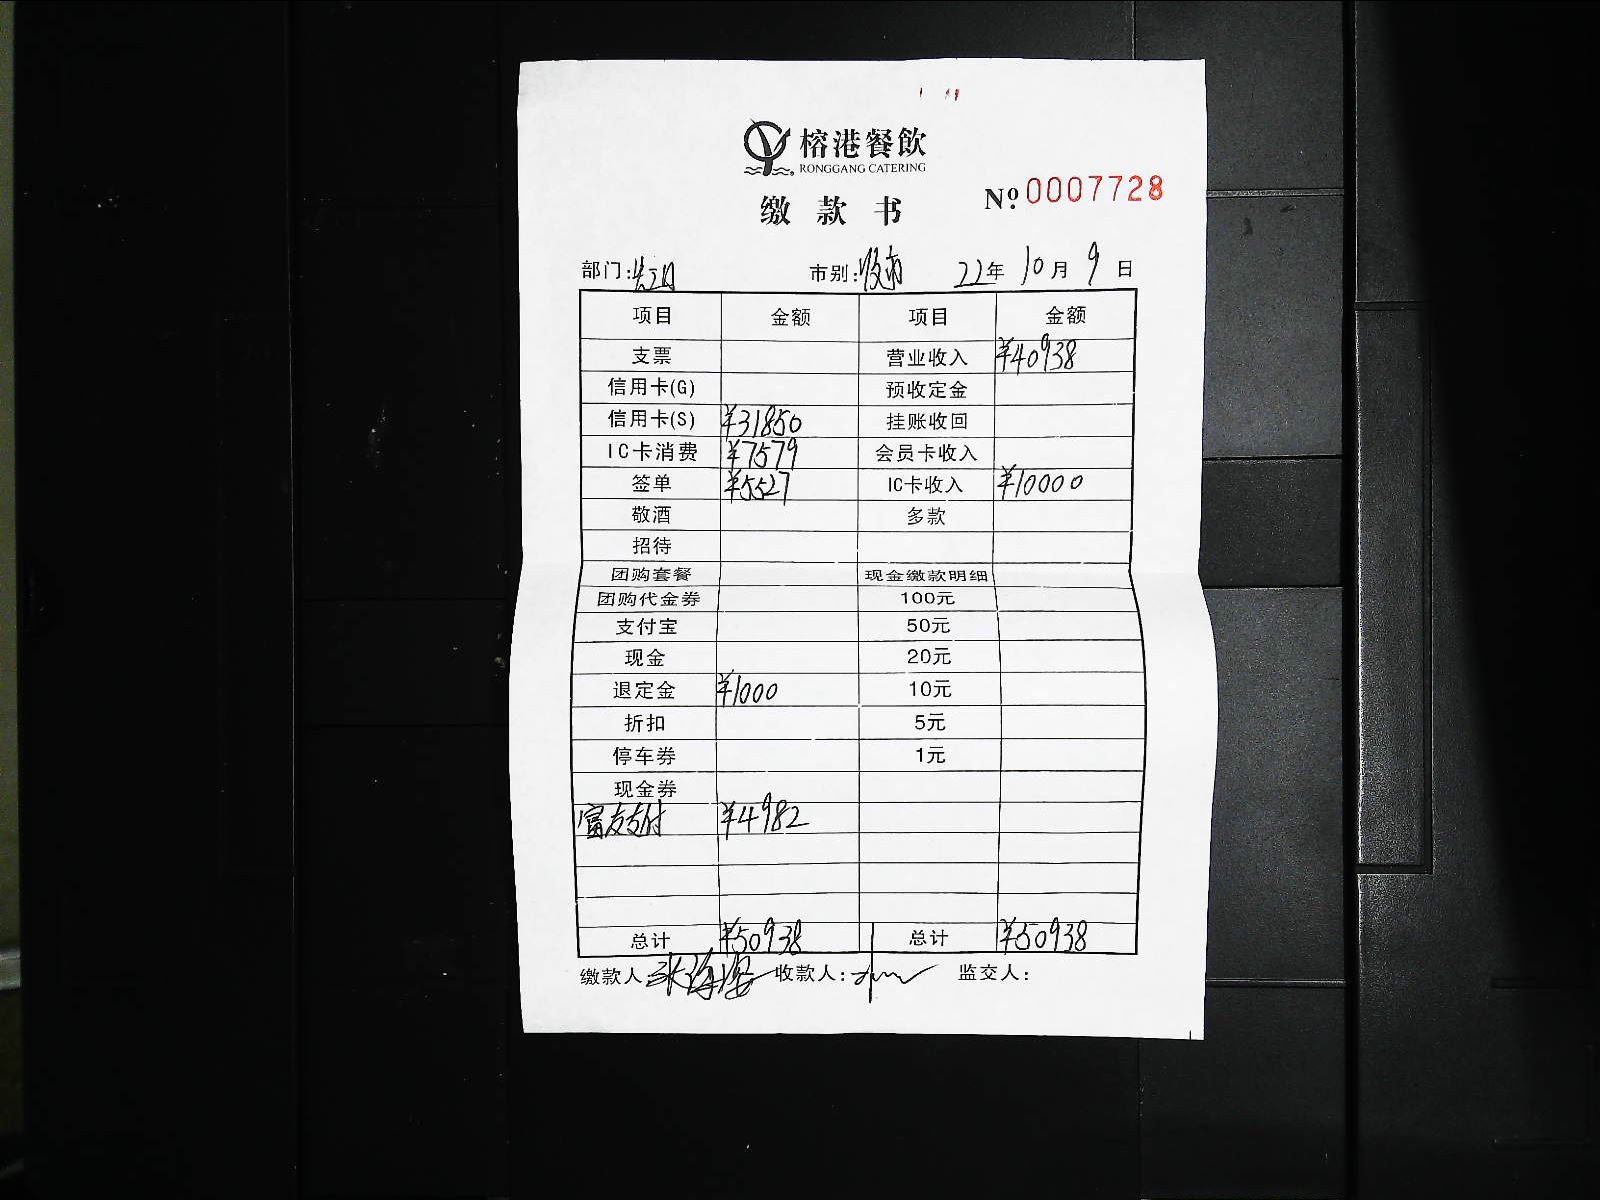 榕港餐飲
RONGGANG CATERING
缴款书
№ 0007728
部门: 市别: 22年 10月 9日
项目 金额 项目 金额
支票 营业收入 ¥40938
信用卡(G) 预收定金
信用卡(S) ¥31850 挂账收回
IC卡消费 ¥7579 会员卡收入
签单 ¥5527 IC卡收入 ¥10000
敬酒 多款
招待
团购套餐 现金缴款明细
团购代金券 100元
支付宝 50元
现金 20元
退定金 ¥1000 10元
折扣 5元
停车券 1元
现金券
富友支付 ¥4982
总计 ¥50938 总计 ¥50938
缴款人: 收款人: 监交人: